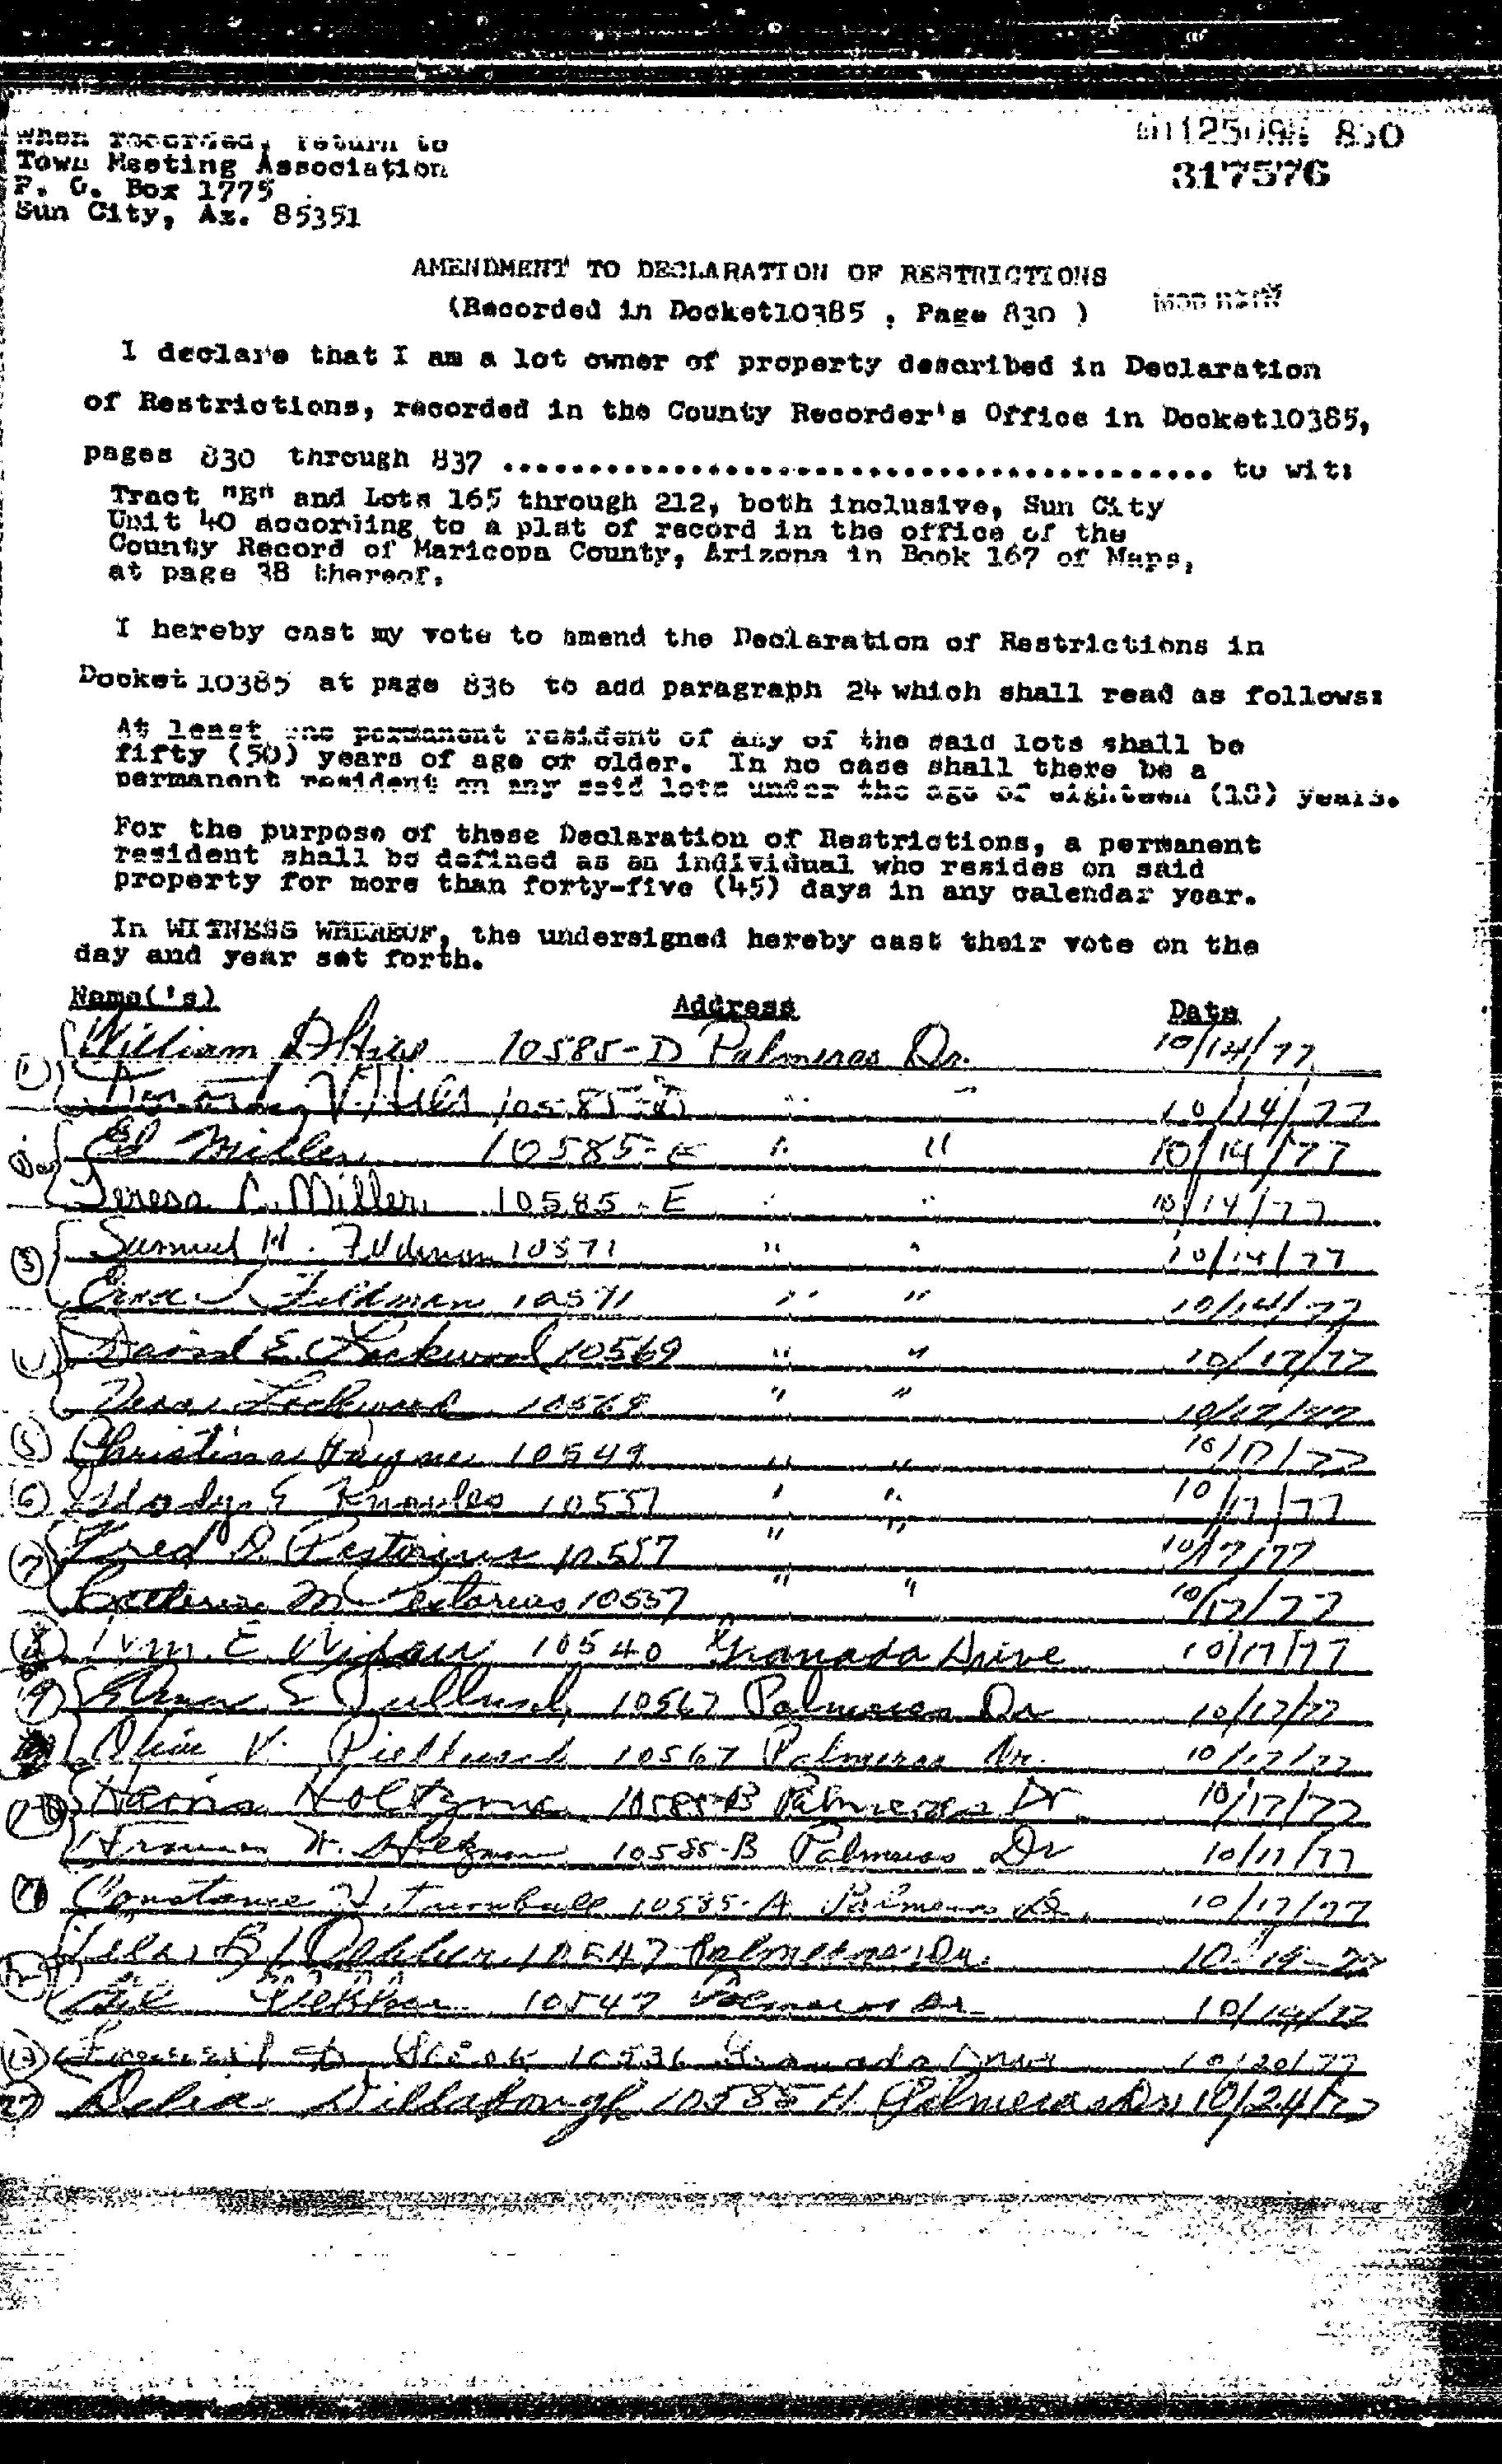 When recorded, return to
Town Meeting Association
P. O. Box 1775
Sun City, Az. 85351
317576
AMENDMENT TO DECLARATION OF RESTRICTIONS
(Recorded in Docket10385 , Page 830 )
MOD RSTR
I declare that I am a lot owner of property described in Declaration
of Restrictions, recorded in the County Recorder's Office in Docket10385,
pages 830 through 837 .......................................... to wit:
Tract "E" and Lots 165 through 212, both inclusive, Sun City
Unit 40 according to a plat of record in the office of the
County Record of Maricopa County, Arizona in Book 167 of Maps,
at page 38 thereof.
I hereby cast my vote to amend the Declaration of Restrictions in
Docket 10385 at page 836 to add paragraph 24 which shall read as follows:
At least one permanent resident of any of the said lots shall be
fifty (50) years of age or older. In no case shall there be a
permanent resident on any said lots under the age of eighteen (18) years.
For the purpose of these Declaration of Restrictions, a permanent
resident shall be defined as an individual who resides on said
property for more than forty-five (45) days in any calendar year.
In WITNESS WHEREOF, the undersigned hereby cast their vote on the
day and year set forth.
Name('s) Address Date
William 10585-D Palmeras Dr. 10/14/77
10/14/77
Ed Miller 10585-E " " 10/14/77
Teresa C. Miller 10585-E " " 10/14/77
3 Samuel H. Feldman 10571 " " 10/14/77
Feldman 10571 " " 10/14/77
David E. Lockwood 10569 " " 10/17/77
Lockwood 10569 " " 10/17/77
5 Christina Payne 10549 " " 10/17/77
6 E Knowles 10551 " " 10/17/77
7 Fred D. Pistorius 10557 " " 10/17/77
M Pistorius 10557 " " 10/17/77
8 Wm. E 10540 Granada Drive 10/17/77
9 10567 Palmeras Dr 10/17/77
Olive V. 10567 Palmeras Dr. 10/17/77
10 Holtzman 10585-B Palmeras Dr 10/17/77
Frances H. Holtzman 10585-B Palmeras Dr 10/17/77
11 Constance H. Turnbull 10585-A Palmeras Dr. 10/17/77
10547 Palmeras Dr. 10-19-77
10547 Palmeras Dr 10/19/77
10536 Granada Drive 10/20/77
Delia Dillabough 10585 H Palmeras Dr 10/24/77